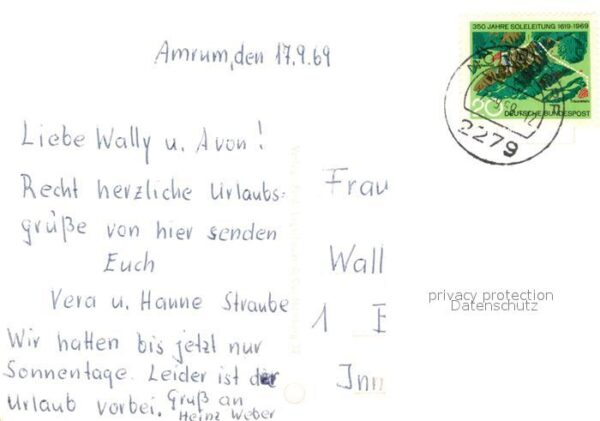 Amrum, den 17.9.69
Liebe Wally u. Avon!
Recht herzliche Urlaubs-
grüße von hier senden
Euch
Vera u. Hanne Straube
Wir hatten bis jetzt nur
Sonnentage. Leider ist der
Urlaub vorbei. Gruß an
Heinz Weber
350 JAHRE SOLELEITUNG 1619-1969
20
DEUTSCHE BUNDESPOST
2279
Frau
Wall
1
Inn
privacy protection
Datenschutz